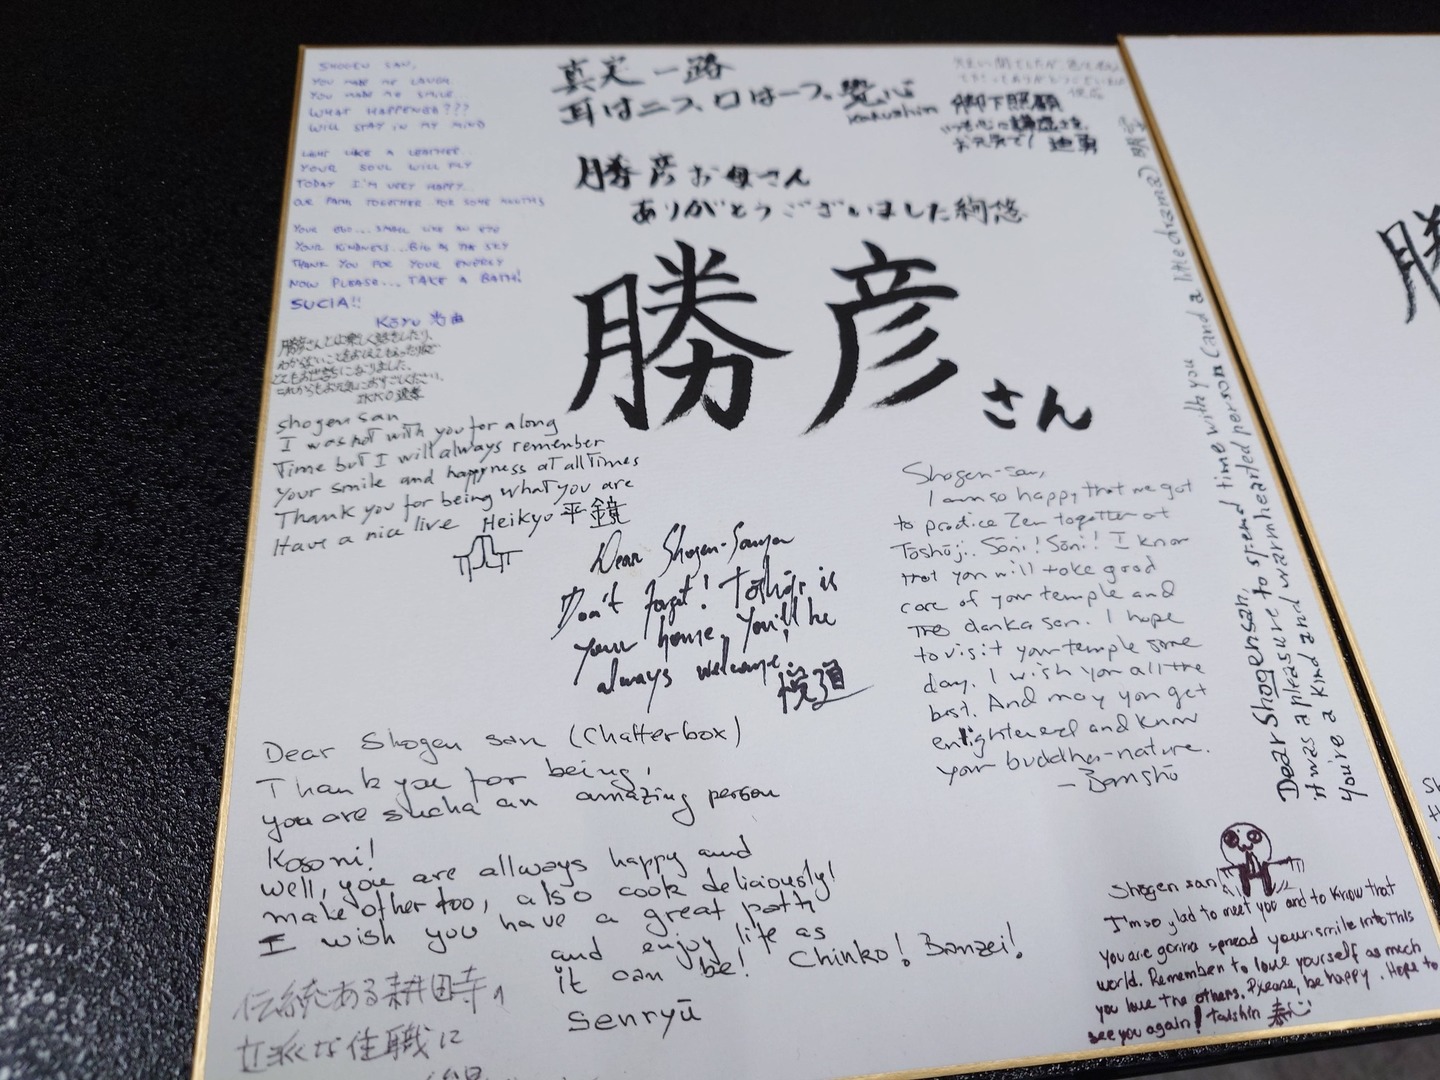 SHOGEN SAN,
YOU MADE ME LAUGH
YOU MADE ME SMILE
WHAT HAPPENED???
WILL STAY IN MY MIND
LIGHT LIKE A FEATHER...
YOUR SOUL WILL FLY
TODAY I'M VERY HAPPY...
OUR PATH TOGETHER FOR SOME MONTHS
YOUR EGO... SMALL LIKE AN EYE
YOUR KINDNESS... BIG AS THE SKY
THANK YOU FOR YOUR ENERGY
NOW PLEASE... TAKE A BATH!
SUCIA!!
Kōyu 光由
勝彦さんとは楽しく話をしたり、
とてもお世話になりました。
真実一路
耳は二つ、口は一つ。覚心
Kakushin
脚下照顧
お元気で!
勝彦お母さん
ありがとうございました 絢悠
勝彦さん
shogen san
I was not with you for a long
time but I will always remember
your smile and happyness at all times
Thank you for being what you are
Have a nice live Heikyo 平鏡
Dear Shogen-Sama
Don't forget! Tōshōji is
your home. You'll be
always welcome.
悦道
Shogen-san,
I am so happy that we got
to practice Zen together at
Tōshōji. Sōni! Sōni!! I know
that you will take good
care of your temple and
the danka san. I hope
to visit your temple some
day. I wish you all the
best. And may you get
enlightened and know
your buddha-nature.
- Banshō
Dear Shogensan,
it was a pleasure to spend time with you
You're a kind and warmhearted person (and a little drama)
Dear Shogen san (Chatterbox)
Thank you for being,
you are sucha an amazing person
Kosoni!
well, you are allways happy and
make other too, also cook deliciously!
I wish you have a great path
and enjoy life as
it can be! Chinko! Banzei!
Senryū
伝統ある耕田寺の
立派な住職に
Shogen san
I'm so glad to meet you and to know that
you are gonna spread your smile into this
world. Remember to love yourself as much
you love the others. Please, be happy. Hope to
see you again! Taishin 泰心